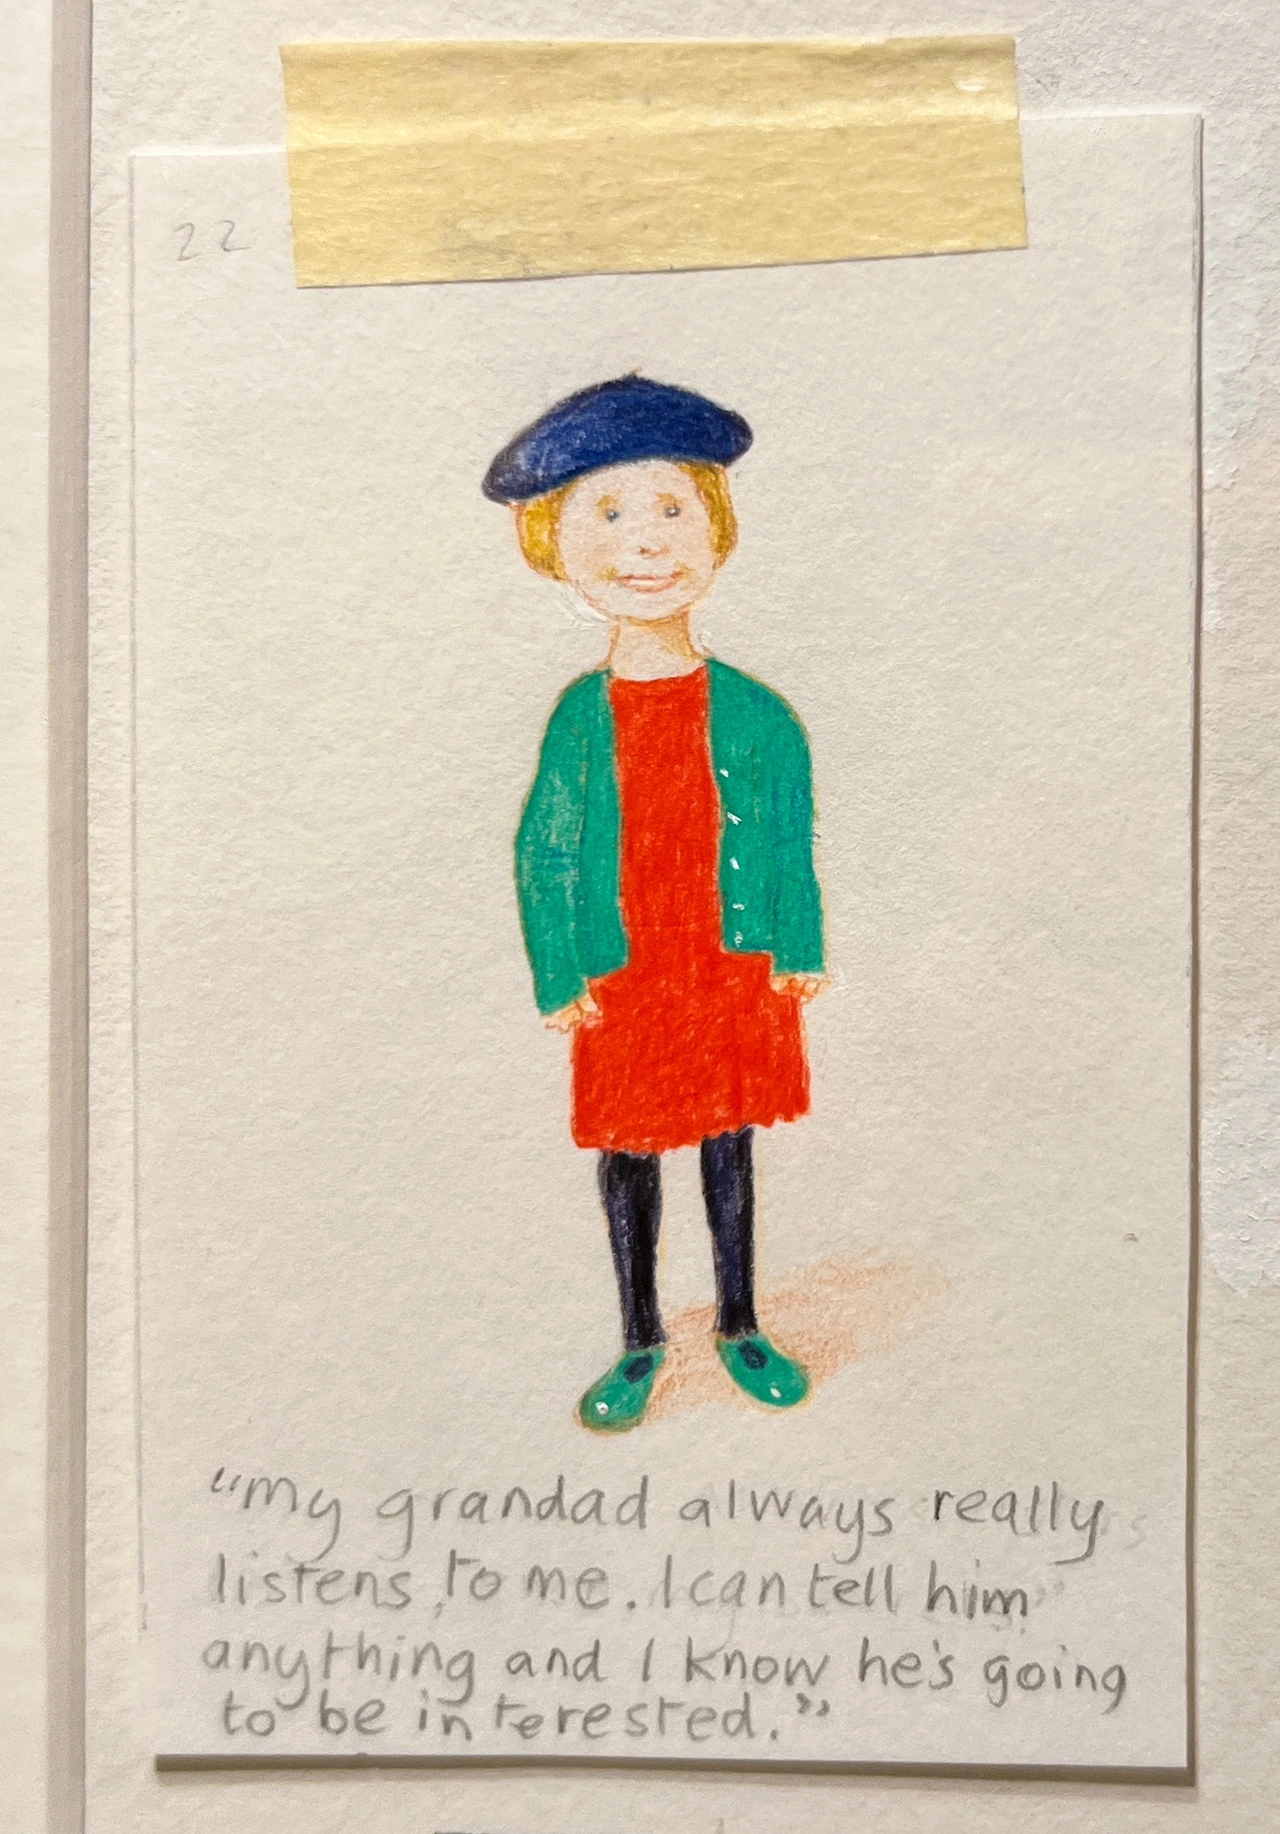 22
"my grandad always really
listens to me. I can tell him
anything and I know he's going
to be interested."